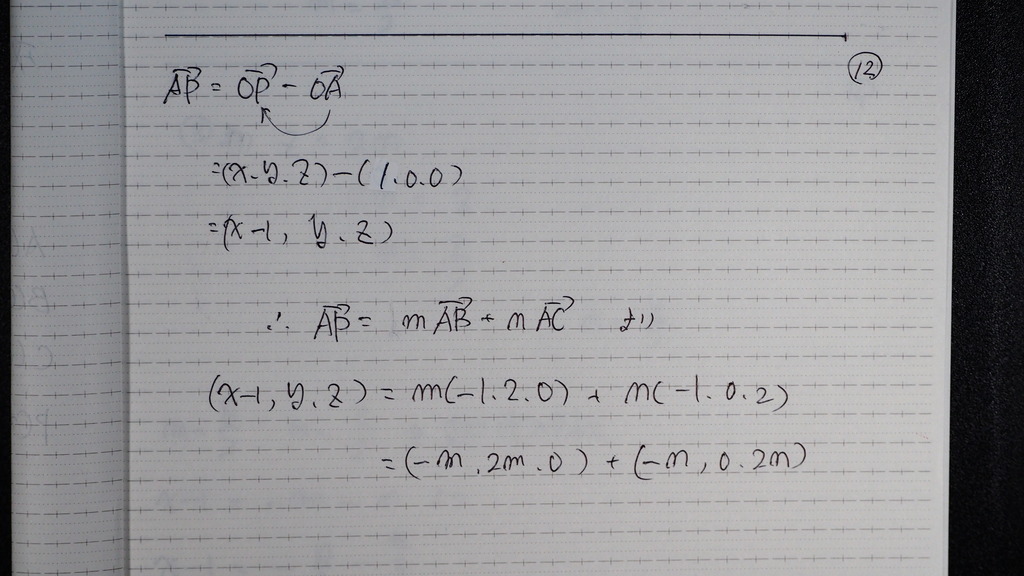 ⑫
AP⃗ = OP⃗ - OA⃗
=(x.y.z)-(1.0.0)
=(x-1, y.z)
∴ AP⃗ = mAB⃗ + nAC⃗ より
(x-1, y.z) = m(-1.2.0) + n(-1.0.2)
=(-m.2m.0) + (-n, 0.2n)